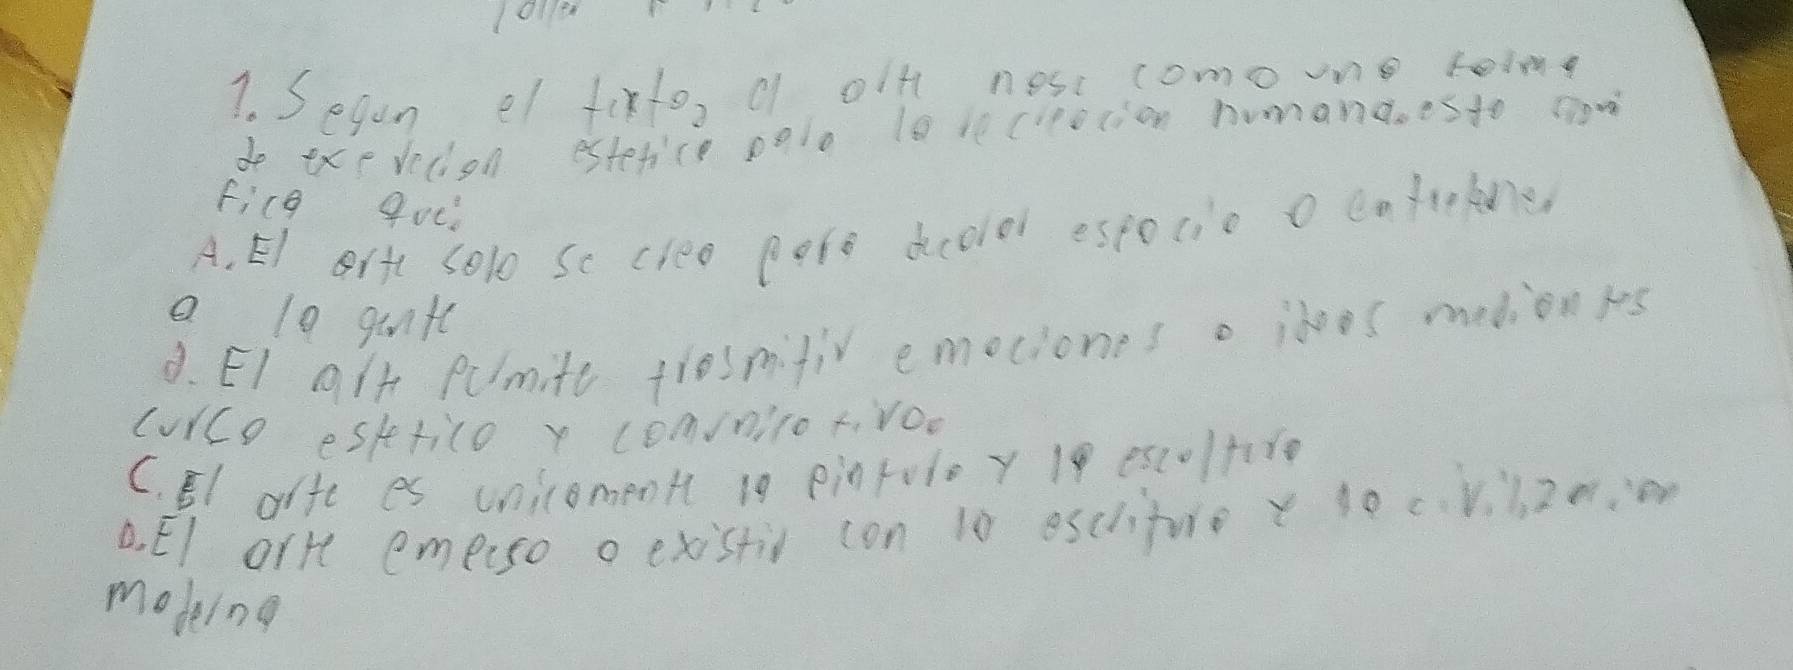 Taller
1. Segun el texto, el arte nose como una forma
de exprecion estetica para la recreacion humana. esto signi
fica que:
A. El arte solo se crea para decorar espacio o entretener
a la gente
B. El arte permite trasmitir emociones o ideas mediantes
curco estetico y comunicativo.
C. El arte es unicamente la pintura y la escultura
D. El arte empeso a existir con la escritura y la civilizacion
moderna